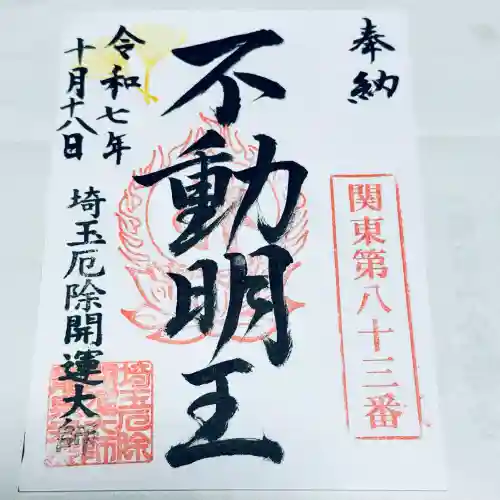 奉納
関東第八十三番
不動明王
令和七年
十月十八日
埼玉厄除開運大師
埼玉厄除